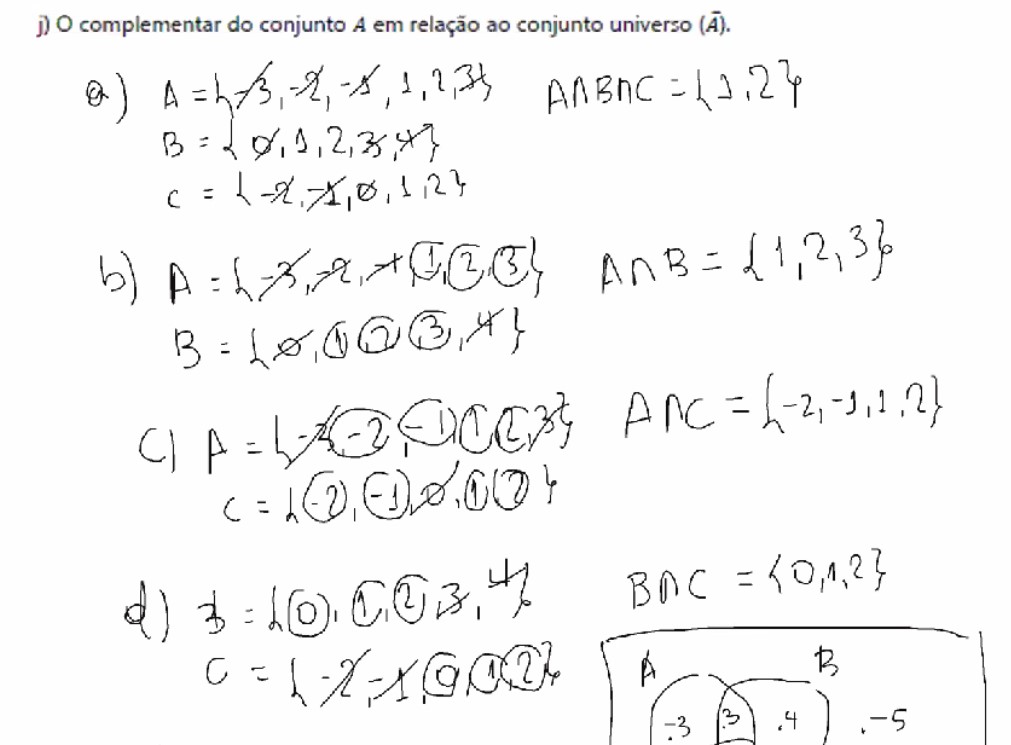 j) O complementar do conjunto A em relação ao conjunto universo (Ā).
a) A = {-3, -2, -1, 1, 2, 3} A∩B∩C = {1, 2}
B = {0, 1, 2, 3, 4}
C = {-2, -1, 0, 1, 2}
b) A = {-3, -2, -1, 1, 2, 3} A∩B = {1, 2, 3}
B = {0, 1, 2, 3, 4}
c) A = {-3, -2, -1, 1, 2, 3} A∩C = {-2, -1, 1, 2}
C = {-2, -1, 0, 1, 2}
d) B = {0, 1, 2, 3, 4} B∩C = {0, 1, 2}
C = {-2, -1, 0, 1, 2}
A B
-3 .3 .4 .-5